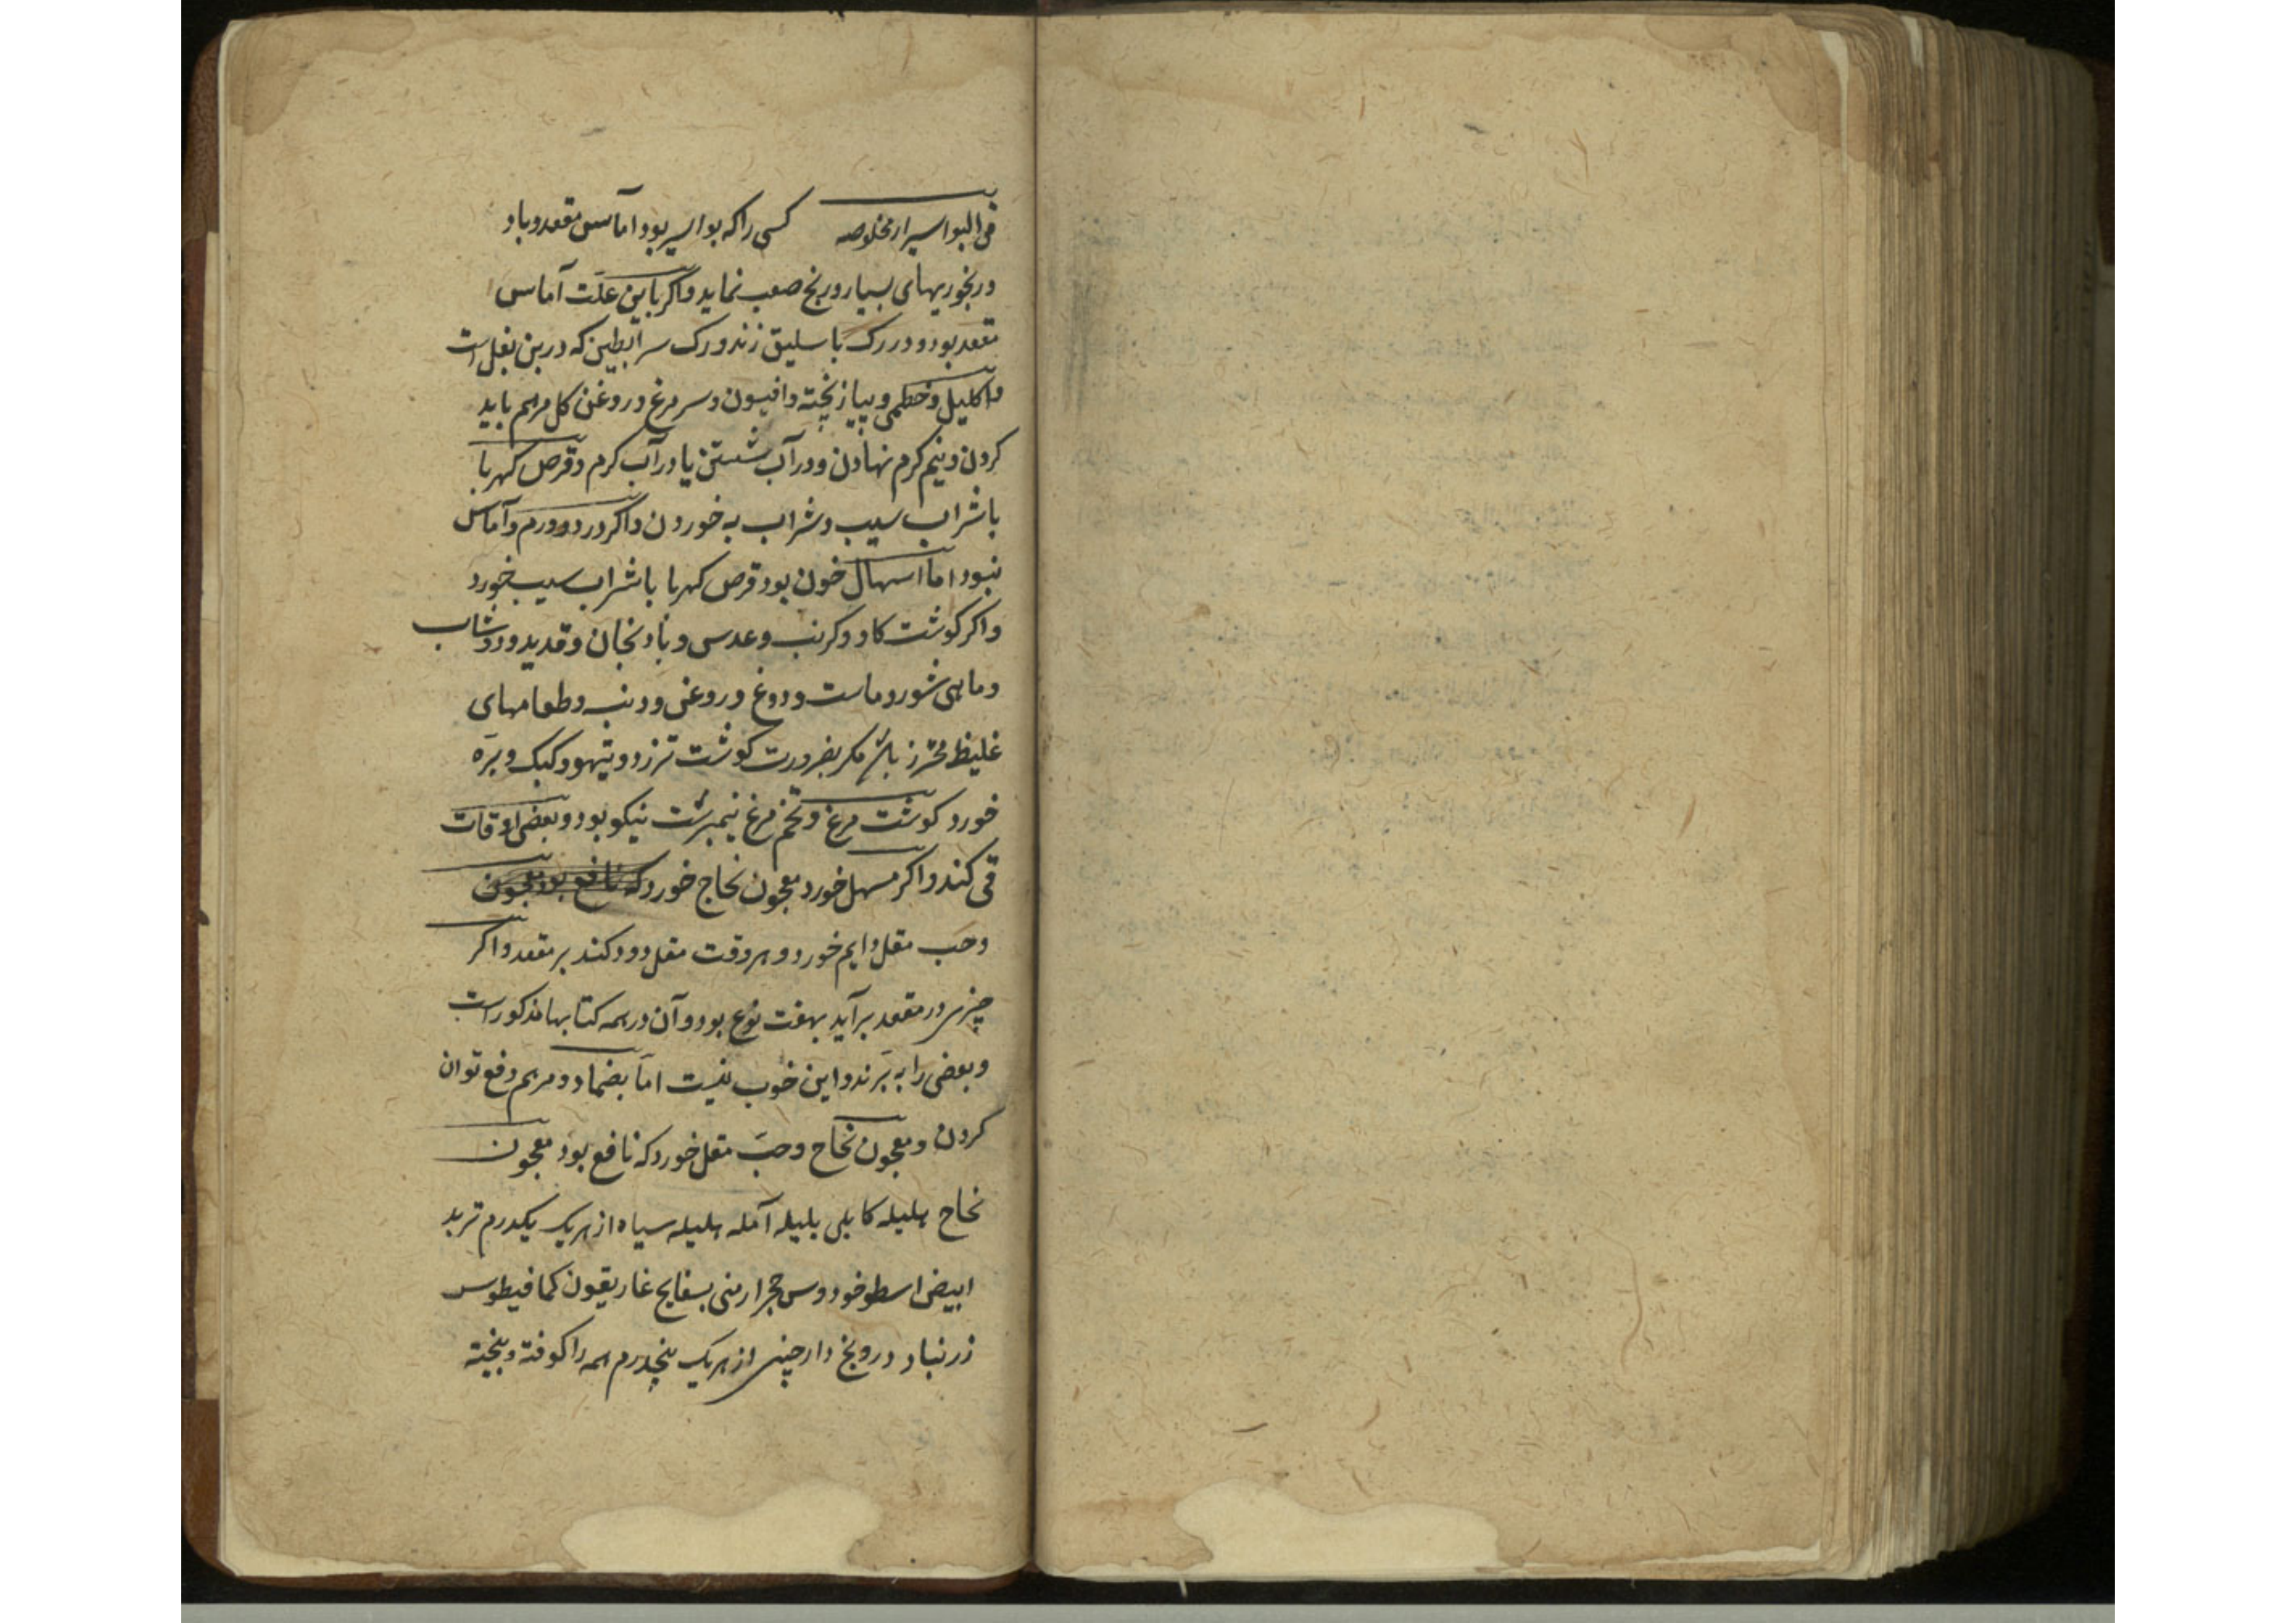 فی البواسیر از خلاصه کسی را که بواسیر بود آماس مقعد و باد
و رنجوریهای بسیار و رنج صعب نماید و اگر باین علت آماس
مقعد بود و درد رک باسلیق زند و رک سر ابطین که در بن بغل است
و اکلیل و خطمی و پیاز پخته و افیون و سر مرغ و روغن کل مرهم باید
کردن و نیم کرم نهادن و در آب شستن یا در آب کرم و قرص کهربا
با شراب سیب و شراب به خوردن و اگر درد و ورم و آماس
نبود اما اسهال خون بود قرص کهربا با شراب سیب خورد
و اکر کوشت کاو و کرنب و عدس و بادنجان و قدید و دوشاب
و ماهی شور و ماست و دوغ و روغن و دنبه و طعامهای
غلیظ محترز باشد مکر بضرورت کوشت تزرد و تیهو و کبک و بره
خورد کوشت مرغ و تخم مرغ نیمبرشت نیکو بود و بعضی اوقات
قی کند و اکر مسهل خورد معجون نجاح خورد که نافع بود معجون
و حب مقل دایم خورد و هر وقت مقل دود کند بر مقعد و اکر
چیزی در مقعد برآید بهفت نوع بود و آن در همه کتابها مذکور است
و بعضی را به برند و این خوب نیست اما بضماد و مرهم دفع توان
کردن و معجون نجاح و حب مقل خورد که نافع بود معجون
نجاح هلیله کابلی بلیله آمله هلیله سیاه از هریک یکدرم تربد
ابیض اسطوخودوس حجر ارمنی بسفایج غاریقون کمافیطوس
زرنباد درونج دارچینی از هریک پنجدرم همه را کوفته و بیخته